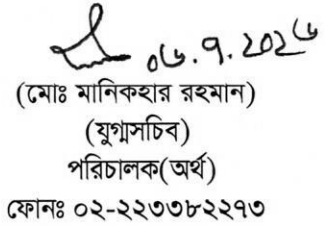 ০৬.৭.২০২৬
(মোঃ মানিকহার রহমান)
(যুগ্মসচিব)
পরিচালক(অর্থ)
ফোনঃ ০২-২২৩৩৮২২৭৩